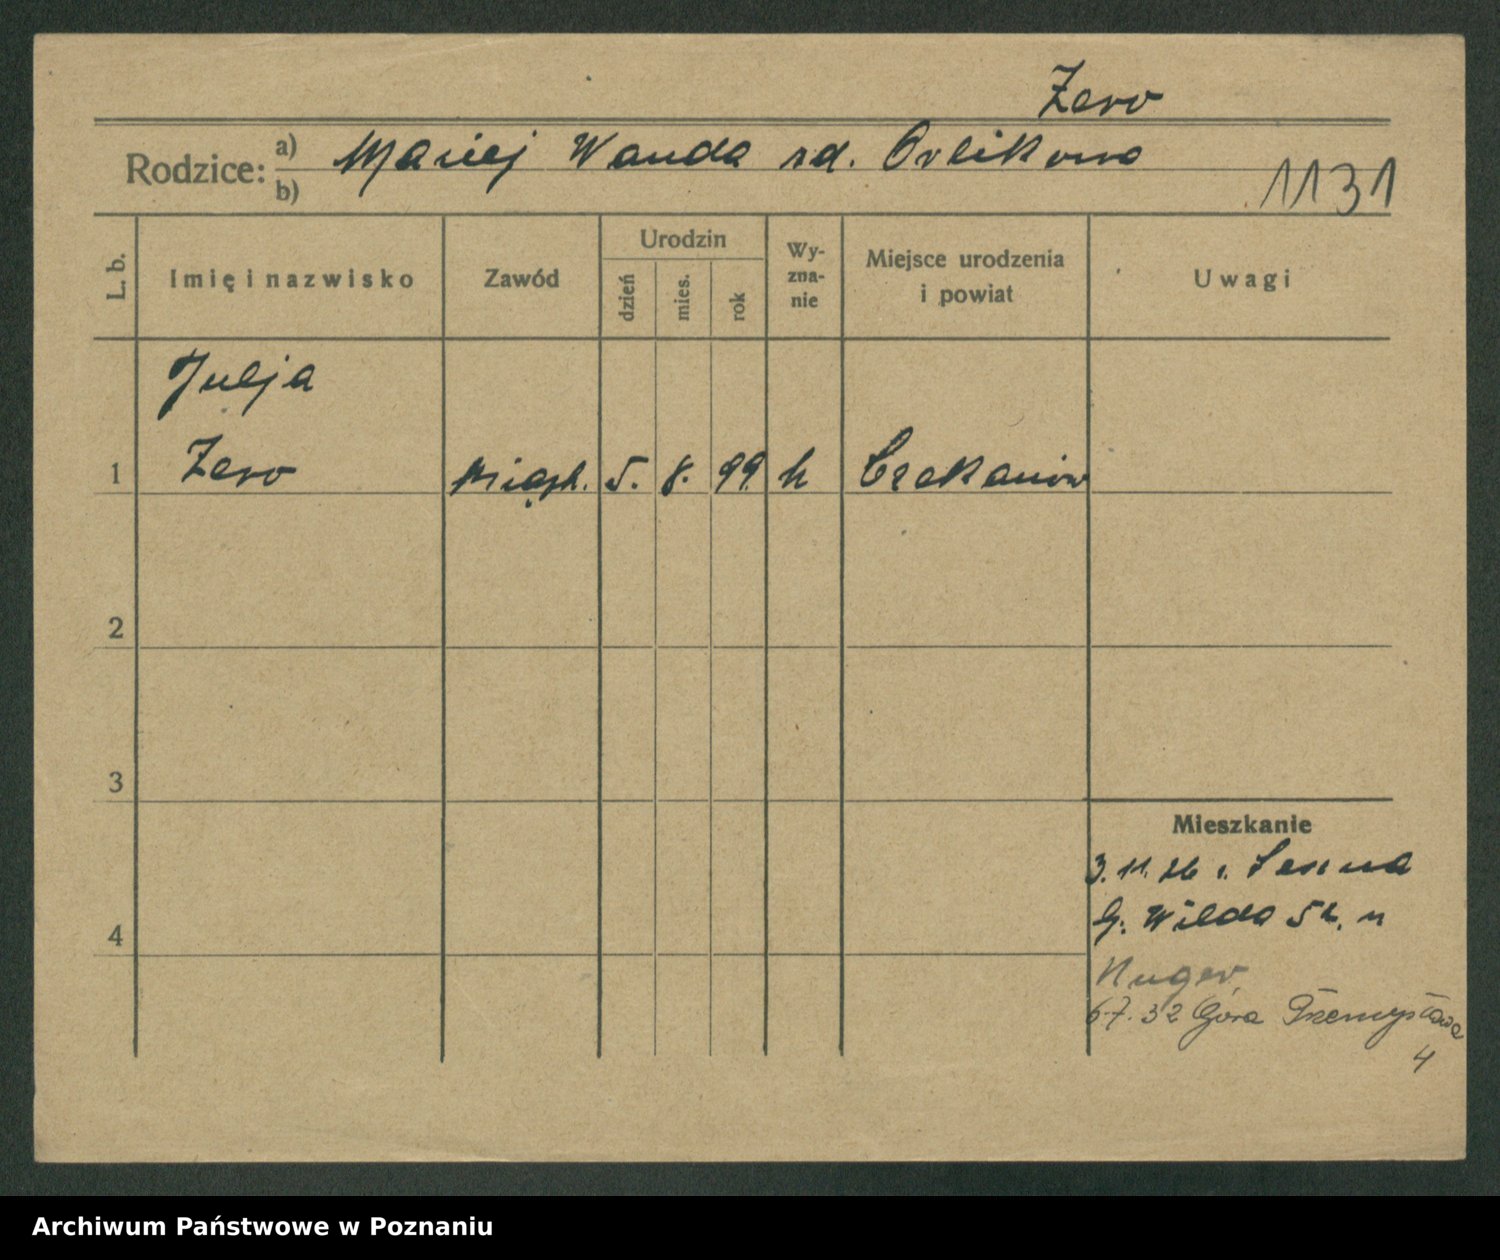 Zero
Rodzice: a) Maciej Wanda zd. Orlikowa
b)
1131
L. b.
Imię i nazwisko
Zawód
Urodzin
dzień
mies.
rok
Wy-
zna-
nie
Miejsce urodzenia
i powiat
Uwagi
Julja
1 Zero 5. 8. 99. k Czekanów
2
3
Mieszkanie
3. 11. 26 r.
4 G. Wilda 52. u
Kuger
6 7. 32 Góra Przemysława
4
Archiwum Państwowe w Poznaniu